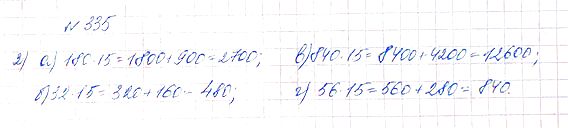 № 335
2) а) 180·15=1800+900=2700; в) 840·15=8400+4200=12600;
б) 32·15=320+160=480; г) 56·15=560+280=840.